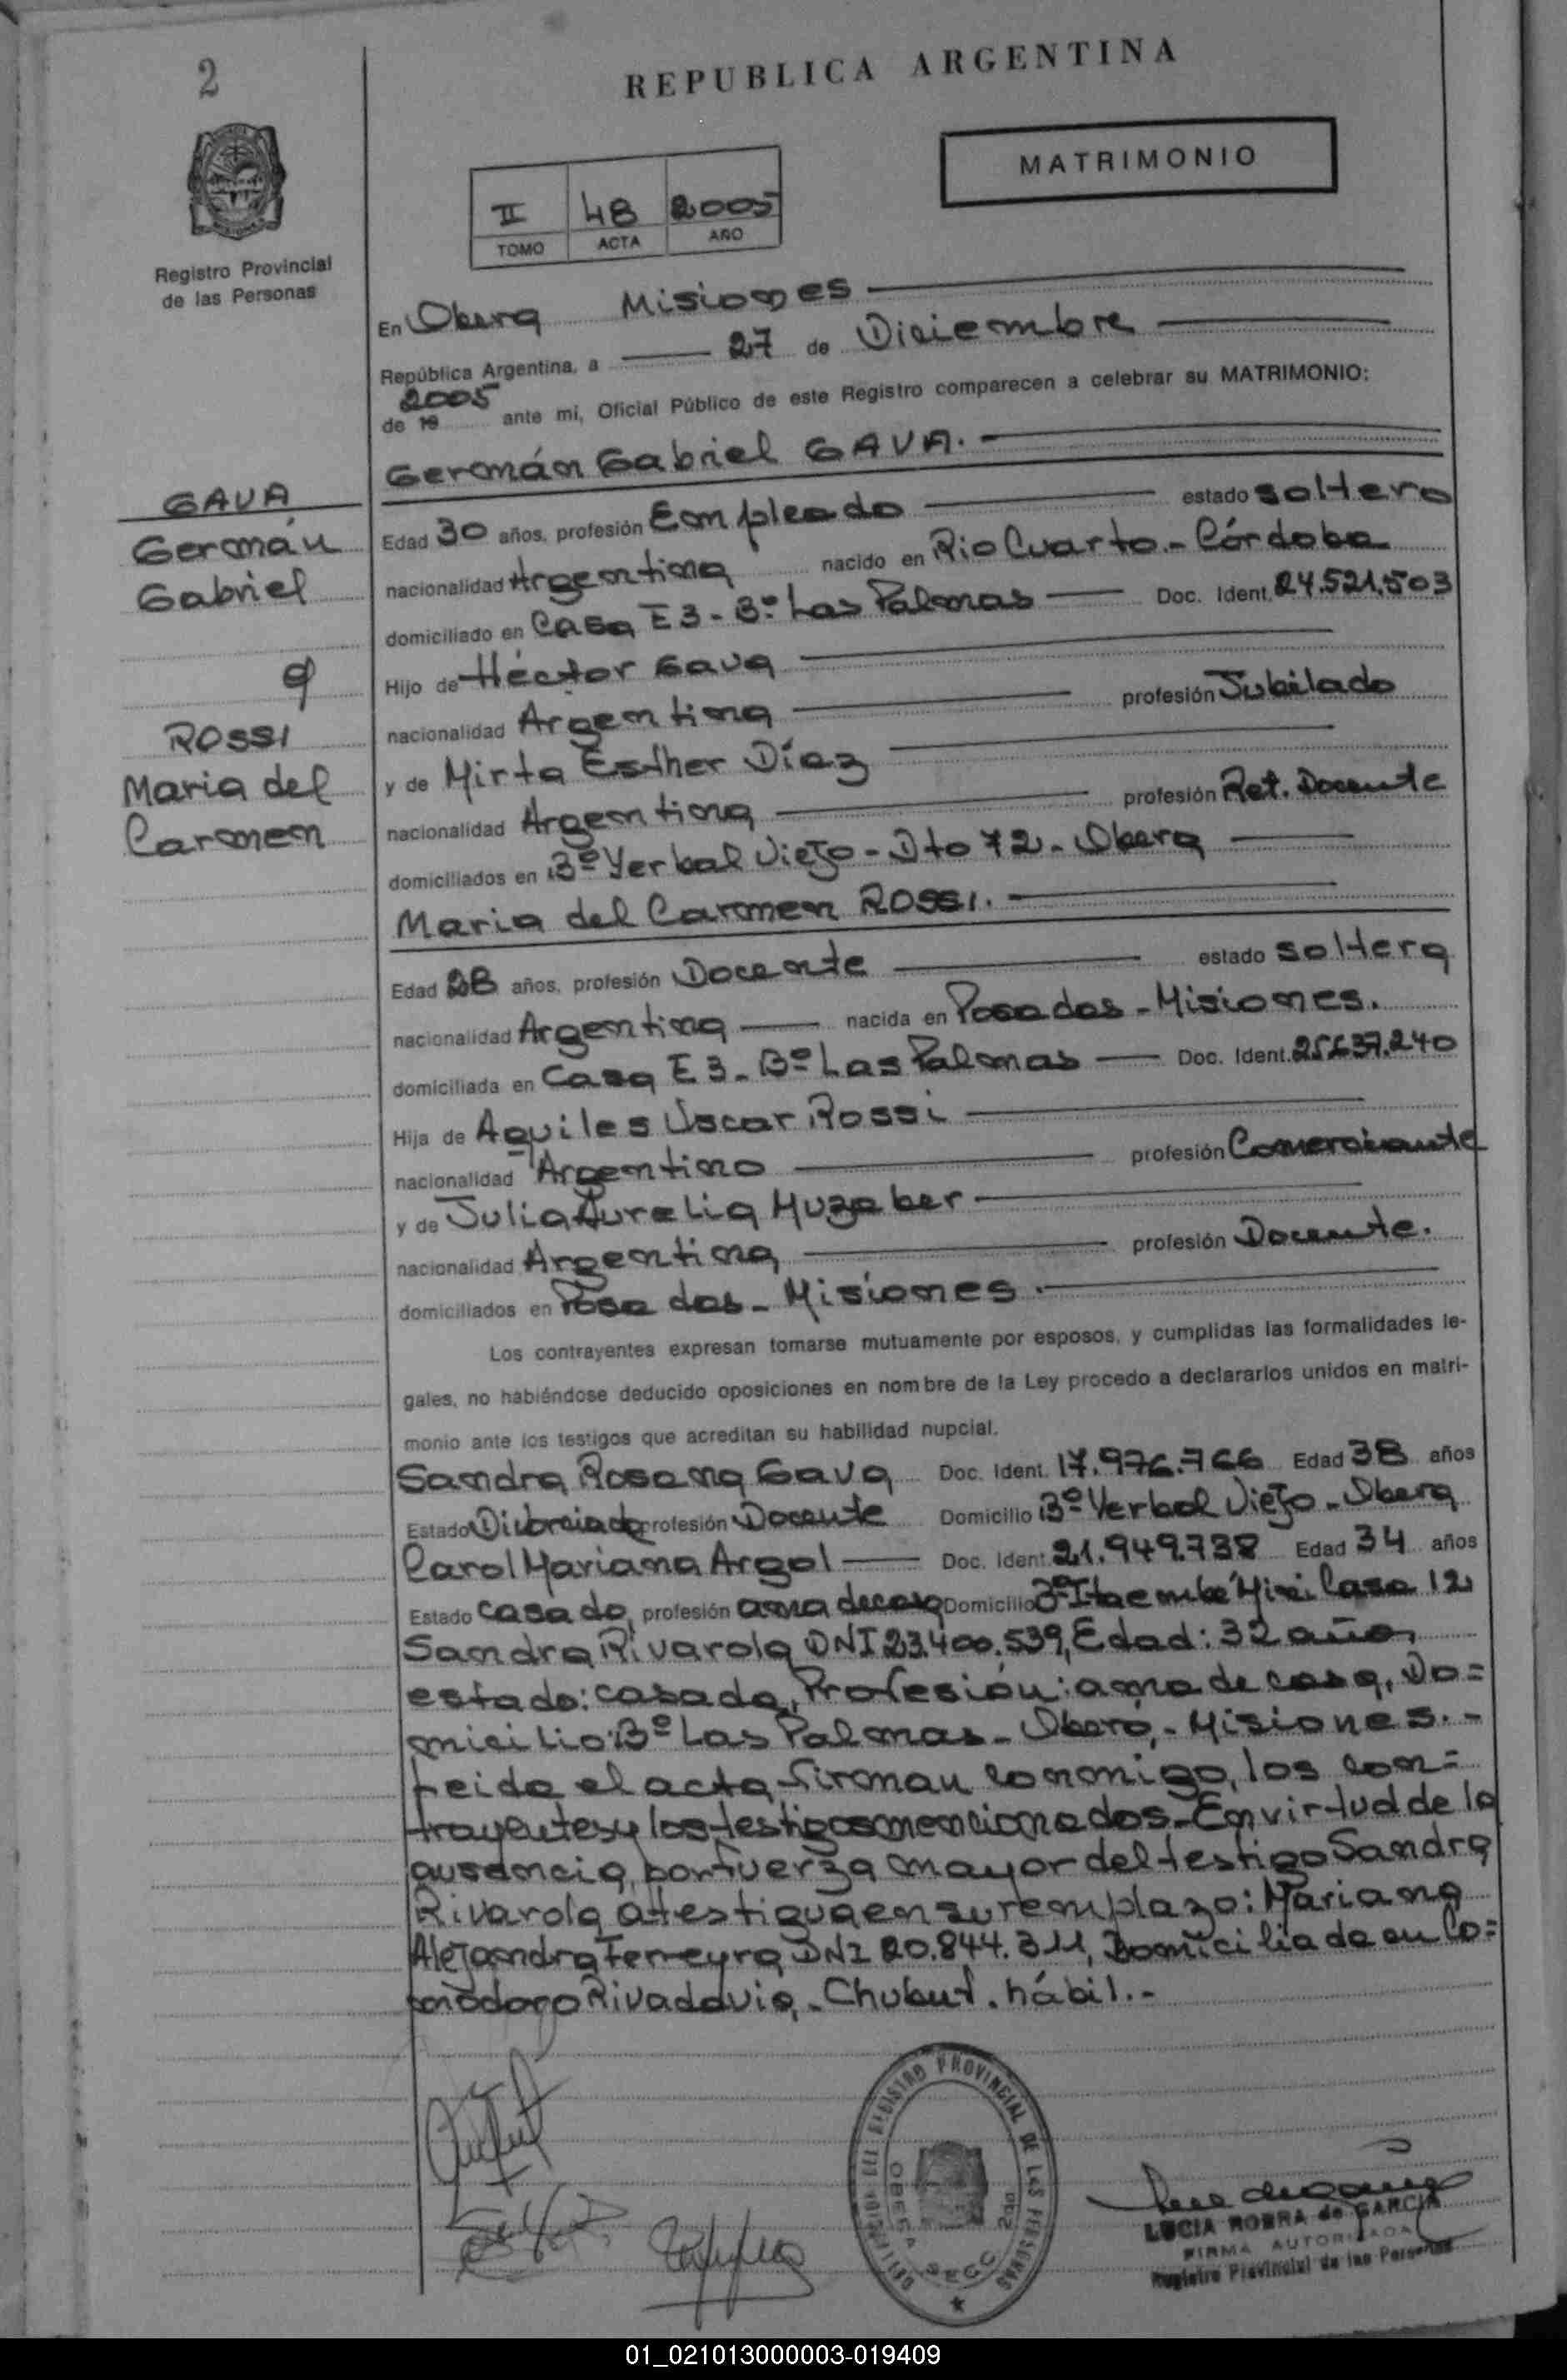 2
REPUBLICA ARGENTINA
MATRIMONIO
II 48 2005
TOMO ACTA AÑO
Registro Provincial
de las Personas
En Oberá Misiones
República Argentina, a 27 de Diciembre
de 19 2005 ante mi, Oficial Público de este Registro comparecen a celebrar su MATRIMONIO:
Germán Gabriel GAVA.
GAVA
Germán
Gabriel
y
ROSSI
Maria del
Carmen
Edad 30 años, profesión Empleado estado soltero
nacionalidad Argentina nacido en Rio Cuarto.- Córdoba
domiciliado en Casa E3 - Bº Las Palmas Doc. Ident. 24.521.503
Hijo de Héctor Gava
nacionalidad Argentina profesión Jubilado
y de Mirta Esther Díaz
nacionalidad Argentina profesión Ret. Docente
domiciliados en Bº Yerbal Viejo - Dto 72 - Oberá
Maria del Carmen ROSSI.
Edad 28 años, profesión Docente estado soltera
nacionalidad Argentina nacida en Posadas - Misiones.
domiciliada en Casa E3 - Bº Las Palmas Doc. Ident. 25.637.240
Hija de Aquiles Oscar Rossi
nacionalidad Argentino profesión Comerciante
y de Julia Aurelia Muzaber
nacionalidad Argentina profesión Docente.
domiciliados en Posadas - Misiones.
Los contrayentes expresan tomarse mutuamente por esposos, y cumplidas las formalidades le-
gales, no habiéndose deducido oposiciones en nombre de la Ley procedo a declararlos unidos en matri-
monio ante los testigos que acreditan su habilidad nupcial.
Sandra Rosana Gava Doc. Ident. 17.976.766 Edad 38 años
Estado Divorciada profesión Docente Domicilio Bº Yerbal Viejo - Oberá
Carol Mariana Argol Doc. Ident. 21.949.738 Edad 34 años
Estado casada profesión ama de casa Domicilio Bº Itaembé Mini Casa 12
Sandra Rivarola DNI 23.400.539, Edad: 32 años,
estado: casada, Profesión: ama de casa, Do=
micilio: Bº Las Palmas - Oberá - Misiones. -
Leida el acta firman conmigo, los con=
trayentes y los testigos mencionados. En virtud de la
ausencia, por fuerza mayor del testigo Sandra
Rivarola atestigua en su remplazo: Mariana
Alejandra Ferreyra, DNI 20.844.311, Domiciliada en Co=
modoro Rivadavia, - Chubut. hábil. -
REGISTRO PROVINCIAL DE LAS PERSONAS
OBERA SECC 2da
LUCIA ROBRA de GARCIA
FIRMA AUTORIZADA
Registro Provincial de las Personas
01_021013000003-019409